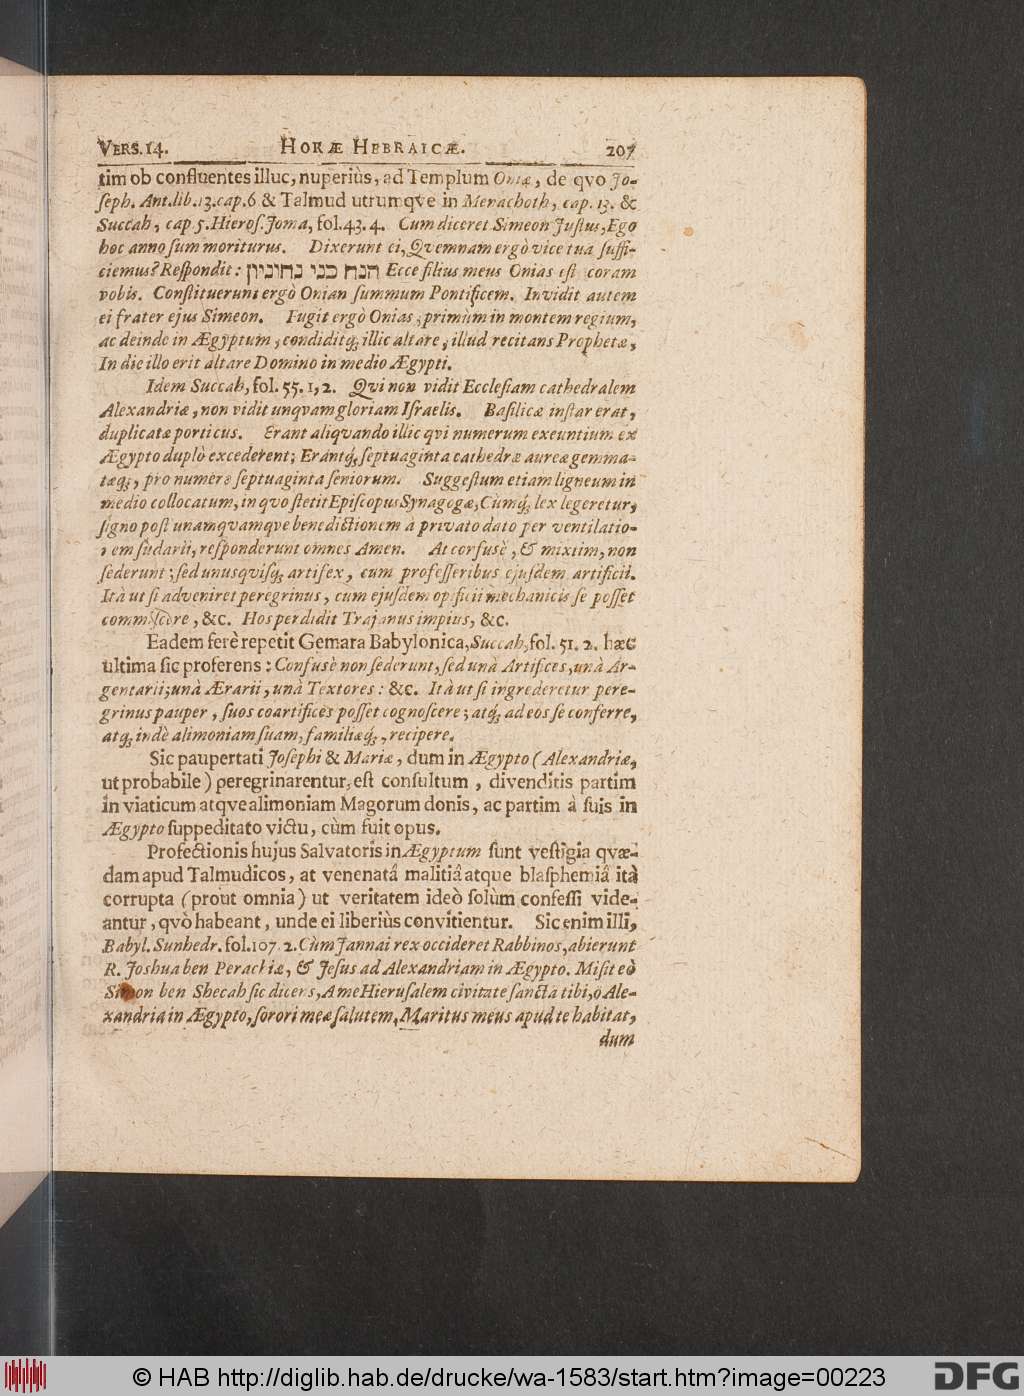 VERS. 14. HORÆ HEBRAICÆ. 207
tim ob confluentes illuc, nuperiùs, ad Templum Oniæ, de qvo Jo-
ſeph. Ant. lib. 13. cap. 6 & Talmud utrumqve in Menachoth, cap. 13. &
Succah, cap 5. Hieroſ. Joma, fol. 43. 4. Cum diceret Simeon Juſtus, Ego
hoc anno ſum moriturus. Dixerunt ei, Qvemnam ergò vice tua ſuffi-
ciemus? Reſpondit: הנח כני נחוניון Ecce filius meus Onias eſt coram
vobis. Conſtituerunt ergò Onian ſummum Pontificem. Invidit autem
ei frater ejus Simeon. Fugit ergò Onias, primùm in montem regium,
ac deinde in Ægyptum, condiditq; illic altare, illud recitans Prophetæ,
In die illo erit altare Domino in medio Ægypti.
Idem Succah, fol. 55. 1, 2. Qvi non vidit Eccleſiam cathedralem
Alexandriæ, non vidit unqvam gloriam Iſraelis. Baſilicæ inſtar erat,
duplicatæ porticus. Erant aliqvando illic qvi numerum exeuntium ex
Ægypto duplò excederent; Erantq; ſeptuaginta cathedræ aureæ gemma-
tæq;, pro numero ſeptuaginta ſeniorum. Suggeſtum etiam ligneum in
medio collocatum, in qvo ſtetit Epiſcopus Synagogæ, Cùmq; lex legeretur,
ſigno poſt unamqvamqve benedictionem à privato dato per ventilatio-
nem ſudarii, reſponderunt omnes Amen. At confusè, & mixtim, non
ſederunt; ſed unusqviſq; artifex, cum profeſſoribus ejuſdem artificii.
Ità ut ſi adveniret peregrinus, cum ejuſdem opificii mechanicis ſe poſſet
commiſcere, &c. Hos perdidit Trajanus impius, &c.
Eadem ferè repetit Gemara Babylonica, Succah, fol. 51. 2. hæc
ultima ſic proferens: Confusè non ſederunt, ſed unà Artifices, unà Ar-
gentarii; unà Ærarii, unà Textores: &c. Ità ut ſi ingrederetur pere-
grinus pauper, ſuos coartifices poſſet cognoſcere; atq; ad eos ſe conferre,
atq; indè alimoniam ſuam, familiæq;, recipere.
Sic paupertati Joſephi & Mariæ, dum in Ægypto (Alexandriæ,
ut probabile) peregrinarentur, eſt conſultum, divenditis partim
in viaticum atqve alimoniam Magorum donis, ac partim à ſuis in
Ægypto ſuppeditato victu, cùm fuit opus.
Profectionis hujus Salvatoris in Ægyptum ſunt veſtigia qvæ-
dam apud Talmudicos, at venenatâ malitiâ atque blaſphemiâ ità
corrupta (prout omnia) ut veritatem ideò ſolùm confeſſi vide-
antur, qvò habeant, unde ei liberiùs convitientur. Sic enim illi,
Babyl. Sanhedr. fol. 107. 2. Cùm Jannai rex occideret Rabbinos, abierunt
R. Joshua ben Perachiæ, & Jeſus ad Alexandriam in Ægypto. Miſit eò
Simon ben Shecah ſic dicens, A me Hieruſalem civitate ſancta tibi, ò Ale-
xandria in Ægypto, ſorori meæ ſalutem, Maritus meus apud te habitat,
dum
© HAB http://diglib.hab.de/drucke/wa-1583/start.htm?image=00223
DFG